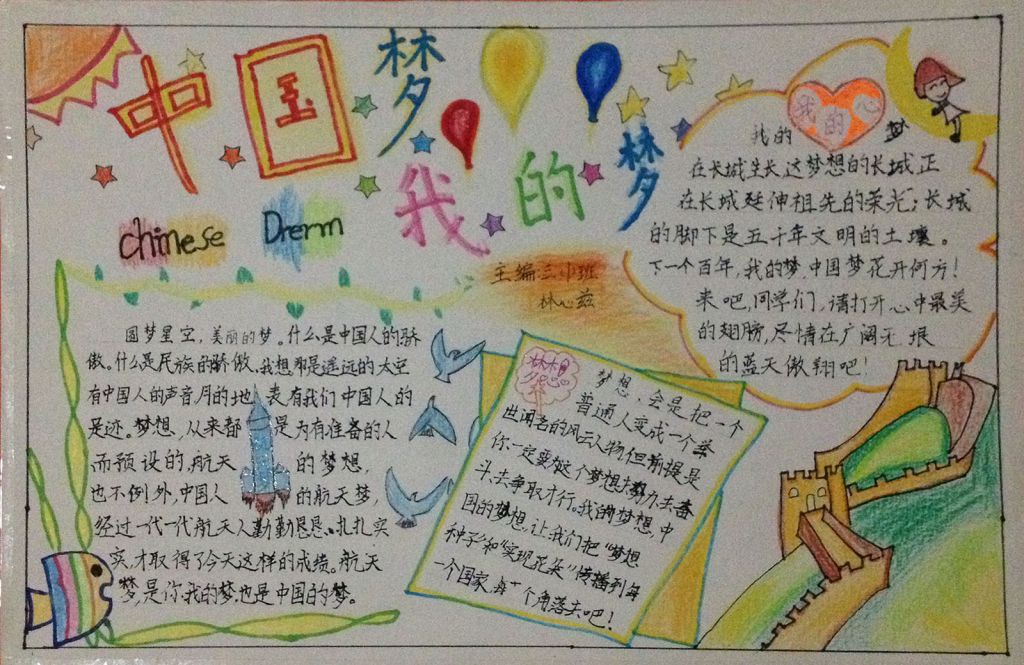 中国梦
我的梦
chinese Drem
主编三小班
林心兹
圆梦星空，美丽的梦。什么是中国人的骄
傲。什么是民族的骄傲，我想那是遥远的太空
有中国人的声音，月的地表有我们中国人的
足迹。梦想，从来都是为有准备的人
而预设的，航天的梦想，
也不例外，中国人的航天梦，
经过一代一代航天人勤勤恳恳、扎扎实
实，才取得了今天这样的成绩。航天
梦，是你我的梦，也是中国的梦。
梦想，会是把一个
普通人变成一个举
世闻名的风云人物，但前提是
你一定要做这个梦想，努力去奋
斗、去争取才行。我的梦想，中
国的梦想，让我们把“梦想
种子”和“实现花朵”传播到每
一个国家，每一个角落去吧！
我的心
我的梦
在长城生长，这梦想的长城正
在长城延伸祖先的荣光；长城
的脚下是五千年文明的土壤。
下一个百年，我的梦，中国梦花开何方！
来吧，同学们，请打开心中最美
的翅膀，尽情在广阔无垠
的蓝天傲翔吧！